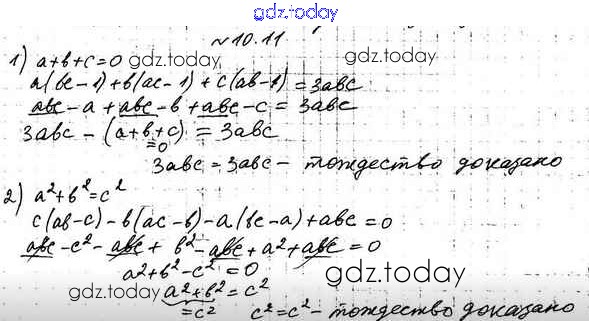 gdz.today
№ 10.11
1) a+b+c=0 gdz.today gdz.today
a(bc-1)+b(ac-1)+c(ab-1)=3abc
abc-a+abc-b+abc-c=3abc
3abc-(a+b+c)=3abc
=0
3abc=3abc- тождество доказано
2) a²+b²=c²
c(ab-c)-b(ac-b)-a(bc-a)+abc=0
abc-c²-abc+b²-abc+a²+abc=0
a²+b²-c²=0
gdz.today a²+b²=c² gdz.today
=c² c²=c²- тождество доказано